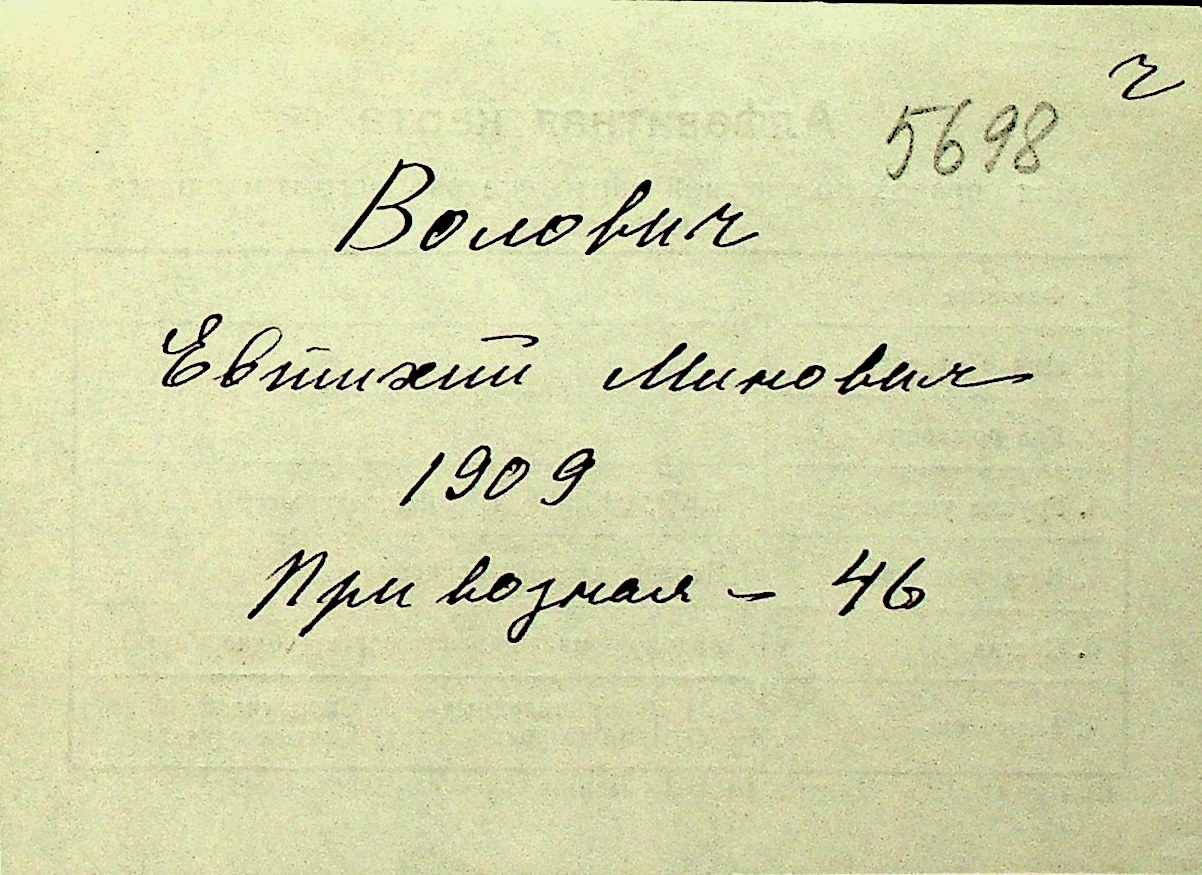 ч
5698
Волович
Евтихий Минович
1909
Привозная - 46